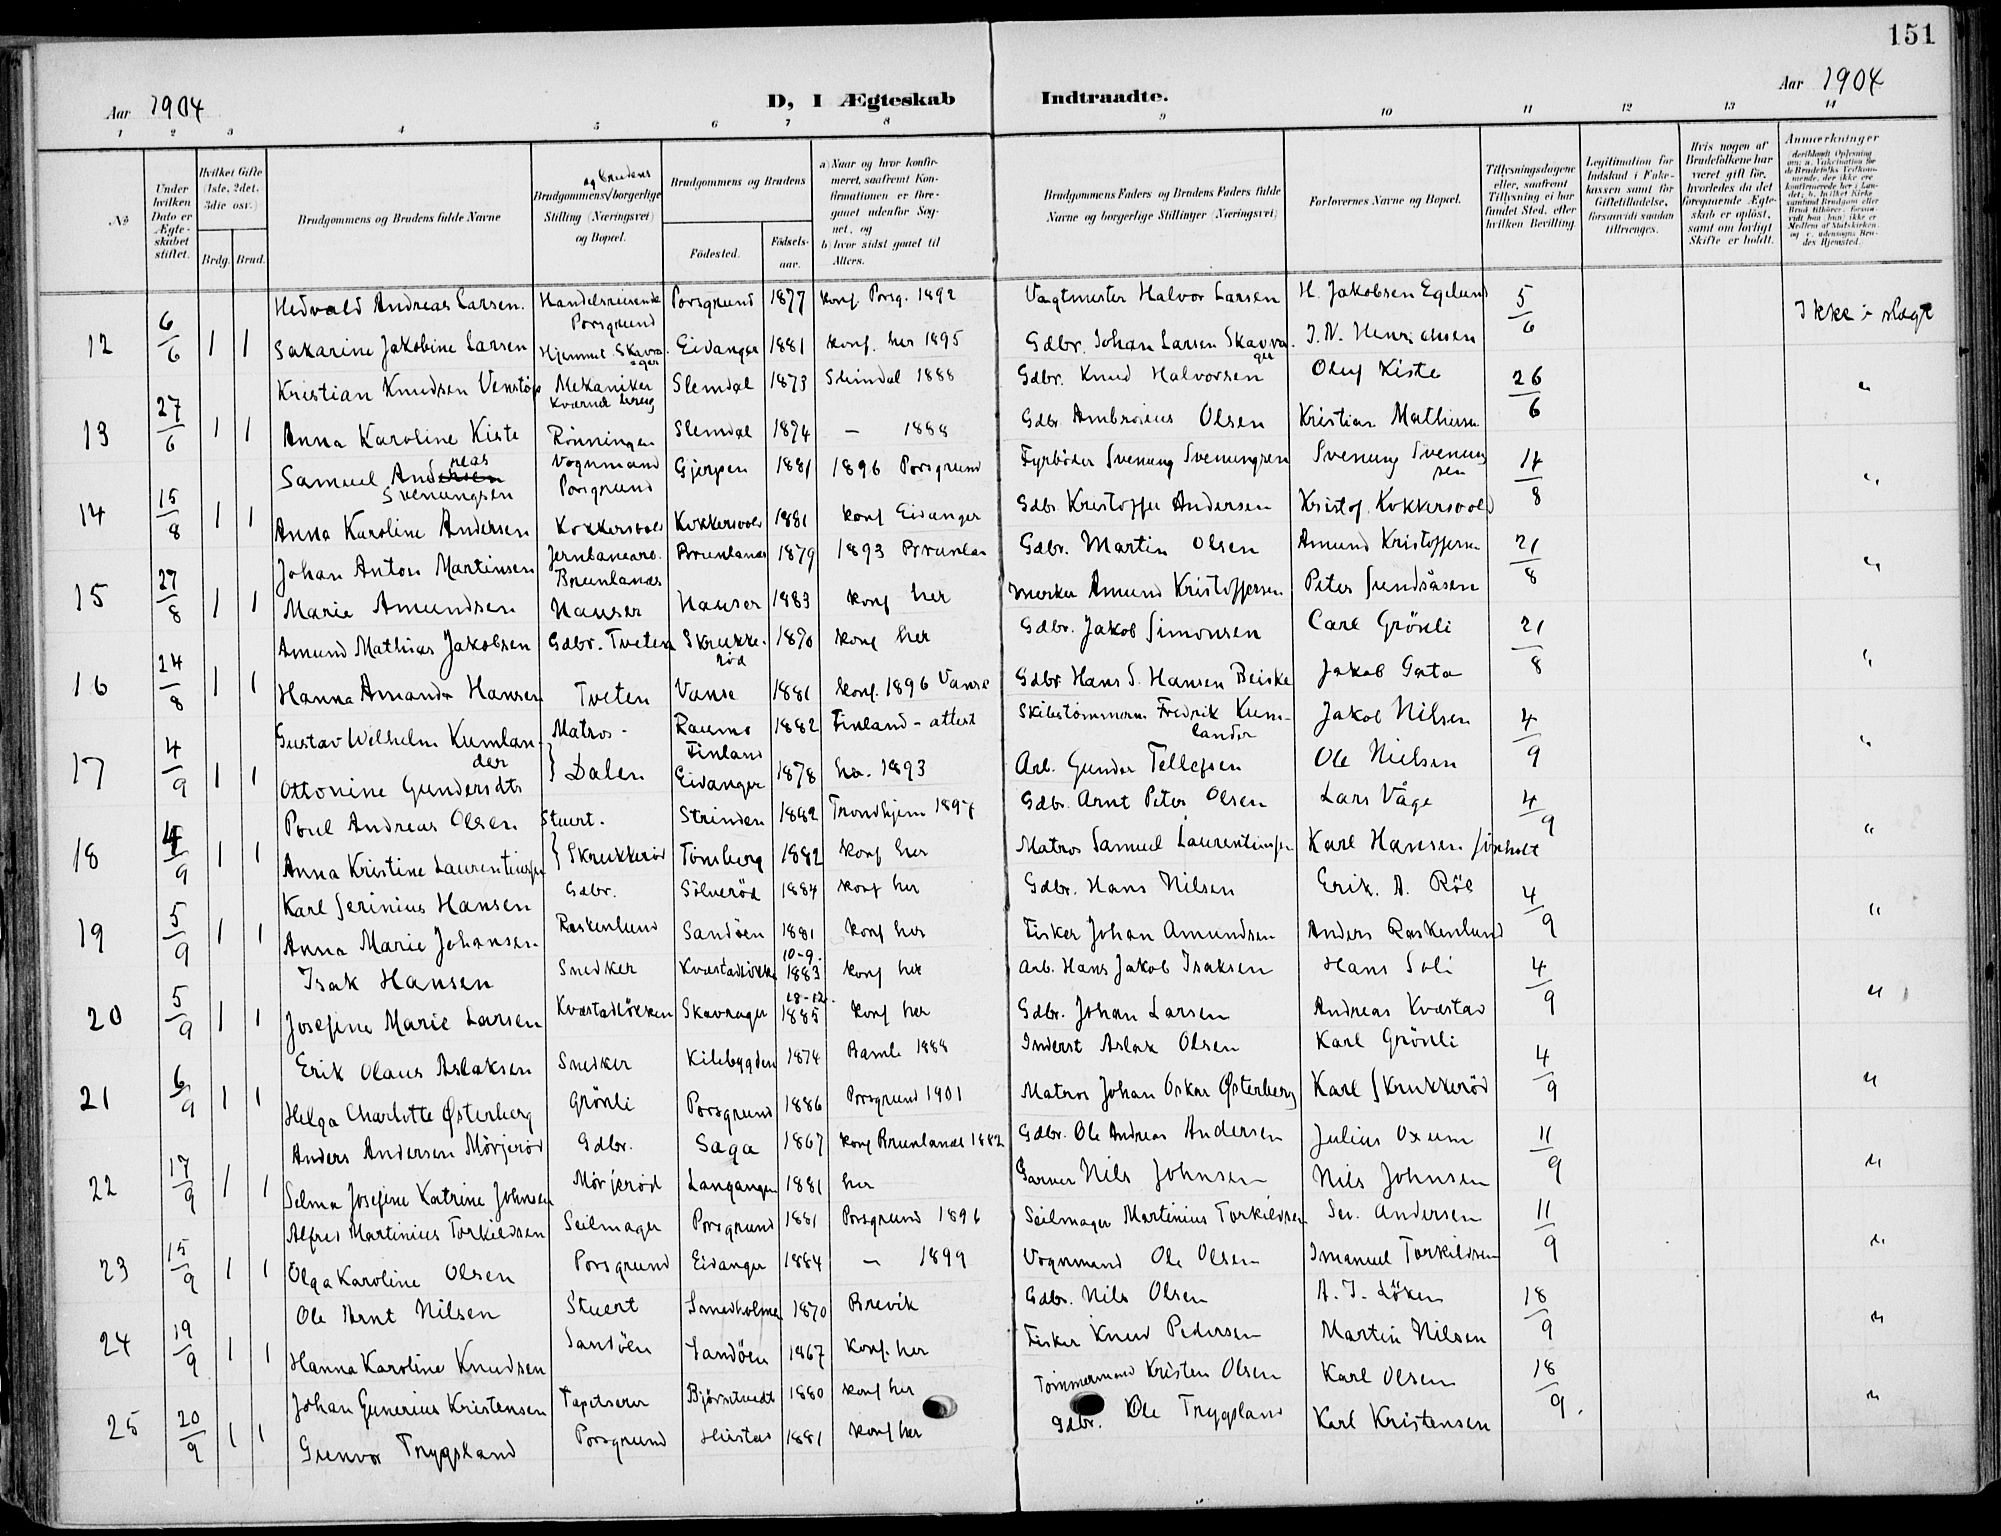 151
Aar 1904
D, I Ægteskab Indtraadte.
Aar 1904
1 2 3 4 5 6 7 8 9 10 11 12 13 14
No.
Under hvilken Dato er Ægteskabet stiftet.
Hvilket Gifte (1ste, 2det, 3die osv.)
Brdg. Brud.
Brudgommens og Brudens fulde Navne
og Brudens
Brudgommens borgerlige Stilling (Næringsvei) og Bopæl.
Brudgommens og Brudens
Fødested. Fødselsaar.
a) Naar og hvor konfirmeret, saafremt Konfirmationen er foregaaet udenfor Sognet, og
b) hvor sidst gaaet til Alters.
Brudgommens Faders og Brudens Faders fulde Navne og borgerlige Stillinger (Næringsvei)
Forlovernes Navne og Bopæl.
Tillysningsdagene eller, saafremt Tillysning ei har fundet Sted, efter hvilken Bevilling.
Legitimation for Indskud i Enkekassen samt for Giftetilladelse, forsaavidt saadan tiltrænges.
Hvis nogen af Brudefolkene har været gift før, hvorledes da det foregaaende Ægteskab er opløst, samt om lovligt Skifte er holdt.
Anmærkninger
Hedvald Andreas Larsen. Handelsreisende Porsgrund Porsgrund 1877 Konf. Porsg. 1892 Vagtmester Halvor Larsen H. Jakobsen Egelund 5/6 Ikke i slægt
12 6/6 1 1 Sakarine Jakobine Larsen Hjemmet Eidanger 1881 Konf. her 1895 Gdbr. Johan Larsen J. N. Henrichsen
Kristian Knudsen Venstøp Mekaniker Slemdal 1873 Slemdal 1888 Gdbr. Knud Halvorsen Oluf Kiste 26/6 "
13 27/6 1 1 Anna Karoline Kiste Rønningen Slemdal 1874 — 1888 Gdbr Ambrosius Olsen Kristian Mathisen
Samuel Andreas Svenungsen Vognmand Porsgrund Gjerpen 1881 1896 Porsgrund Fyrbøder Svenung Svenungsen Svenung Svenungsen 14/8 "
14 15/8 1 1 Anna Karoline Andersen Kokkersvold Kokkersvold 1881 Konf Eidanger Gdbr Kristoffer Andersen Kristof. Kokkersvold
Johan Anton Martinsen Jernbanearb. Brunlanes Brunlanes 1879 1893 Brunlan Gdbr. Martin Olsen Amund Kristoffersen 21/8 "
15 27/8 1 1 Marie Amundsen Hauser Hauser 1883 Konf her Amund Kristoffersen Peter Sundsåsen
Amund Mathias Jakobsen Gdbr. Tveten Skrukkerød 1870 Konf her Gdbr. Jakob Simonsen Carl Grönli 21/8 "
16 24/8 1 1 Hanna Amanda Hansen Tveten Vanse 1881 Konf. 1896 Vanse Gdbr Hans S. Hansen Beiske Jakob Gata
Gustav Wilhelm Kumlander Matros Raumo Finland 1882 Finland - attest Fredrik Kumlander Jakob Nilsen 4/9 "
17 4/9 1 1 Ottonine Gundersdtr } Dalen Eidanger 1878 her. 1893 Arb. Gunder Tellefsen Ole Nielsen
Poul Andreas Olsen Stuert. Strinden 1882 Trondhjem 1897 Gdbr. Arnt Peter Olsen Lars Våge 4/9 "
18 4/9 1 1 Anna Kristine Laurentiussen } Skrukkerød Tønsberg 1882 Konf her Matros Samuel Laurentiussen Karl Hansen
Karl Serinius Hansen Gdbr. Sølverød 1884 Konf her Gdbr. Hans Nilsen Erik. A. Röe 4/9 "
19 5/9 1 1 Anna Marie Johansen Raskenlund Sandöen 1881 Konf her Fisker Johan Amundsen Anders Raskenlund
Isak Hansen Snedker Kvæstadløkka 10-9. 1883 Konf her Arb. Hans Jakob Isaksen Hans Soli 4/9 "
20 5/9 1 1 Josefine Marie Larsen Kvæstadlökken Skavrager 18-12. 1885 Konf her Gdbr. Johan Larsen Andreas Kvæstad
Erik Olaus Aslaksen Snedker Kilebygden 1874 Bamle 1888 Inderst Aslak Olsen Karl Grönli 4/9 "
21 6/9 1 1 Helga Charlotte Østerberg Grönli Porsgrund 1886 Porsgrund 1901 Matros Johan Oskar Østerberg Karl Skrukkerød
Anders Andersen Mörjeröd Gdbr. Saga 1867 Konf Brunlanes 1882 Gdbr. Ole Andreas Andersen Julius Oxum 11/9 "
22 17/9 1 1 Selma Josefine Katrine Johnsen Mörjeröd Langangen 1881 her Garver Nils Johnsen Nils Johnsen
Alfred Martinius Torkildsen Seilmager Porsgrund 1881 Porsgrund 1896 Seilmager Martinius Torkildsen Sev. Andersen 11/9 "
23 15/9 1 1 Olga Karoline Olsen Porsgrund Eidanger 1884 — 1899 Vognmand Ole Olsen Imanuel Torkildsen
Ole Arnt Nilsen Stuert Smedholmen 1870 Brevik Gdbr. Nils Olsen A. J. Löken 18/9 "
24 19/9 1 1 Hanna Karoline Knudsen Sandöen Sandöen 1867 Konf. her Fisker Knud Pedersen Martin Nilsen
Johan Gunerius Kristensen Tapetserer Bjørntvedt 1880 Konf her Tömmermand Kristen Olsen Karl Olsen 18/9. "
25 20/9 1 1 Gunvor Trygsland Porsgrund 1881 Konf her Gdbr. Ole Trygsland Karl Kristensen